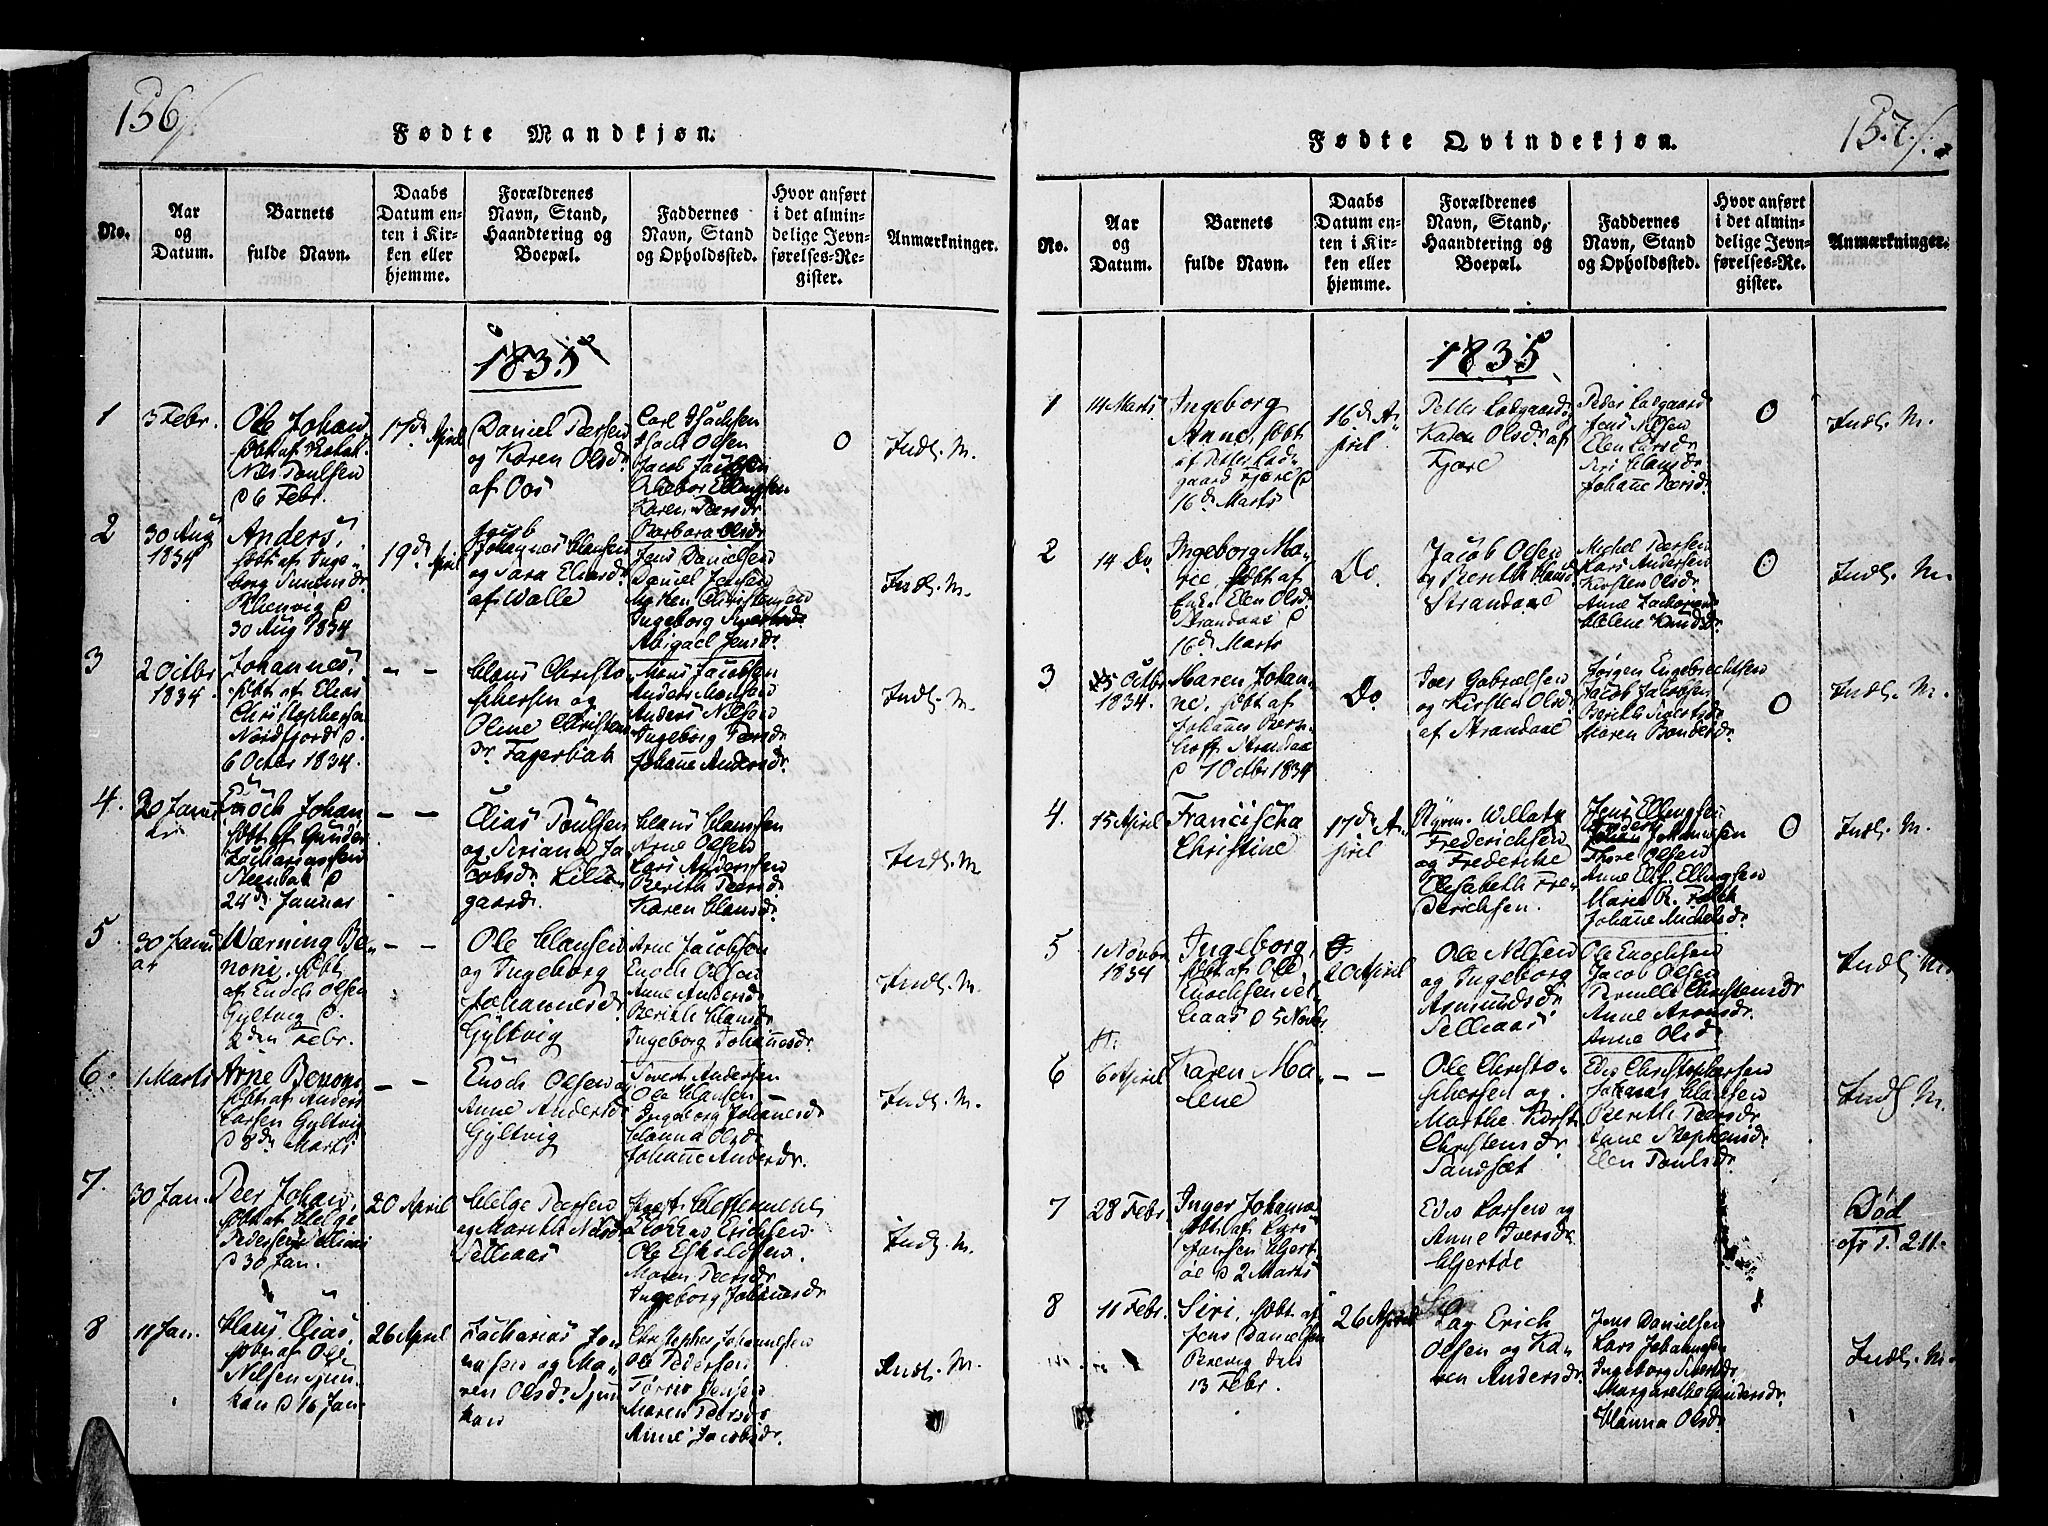 156/.
Fødte Mandkjøn.
No.
Aar
og
Datum.
Barnets
fulde Navn.
Daabs
Datum en-
ten i Kir-
ken eller
hjemme.
Forældrenes
Navn, Stand,
Haandtering og
Boepæl.
Faddernes
Navn, Stand
og Opholdssted.
Hvor anført
i det almin-
delige Jevn-
førelses-Re-
gister.
Anmærkninger.
1835
1
5 Febr.
Ole Johan
døbt af
Poulsen
d 6 Febr.
17de April
Daniel Peersen
og Karen Olsdr
af Oos
Carl Isachsen
Isach Olsen
Jacob Jacobsen
Ellingsen
Karen Peersdr
Barbara Olsdr
0
Indl. M.
2
30 Aug
1834
Anders,
døbt af Inge-
borg
30 Aug 1834
19de April
Johannes Hansen
og Sara Eliasdr
af Walle
Jens Danielsen
Daniel Jensen
Christensen
Ingeborg
Abigael Jensdr
Indl. M.
3
2 Octbr
1834.
Johannes,
døbt af Elias
Christophersen
Nordfjord d.
6 Octbr 1834.
— —
Hans Christo-
phersen og
Oline Christens
dr. Fagerbak
Mons Jacobsen
Anders Monsen
Anders Nilsen
Ingeborg Peersdr
Johanne Andersdr.
Indl. M.
4.
20 Janu
Enoch Johan
døbt af Gunder
Zachariassen
Steenbak d
24de Januar
— —
Elias Poulsen
og Siriana Ja-
cobsdr Lille-
gaard.
Hans Hansen
Arne Olsen
Lars Andersen
Berith Peersdr
Karen Hansdr.
Indl. M.
5.
30 Janu
ar
Wærning Be-
noni, døbt
af Enoch Olsen
Gyltvig d.
2den Febr.
— —
Ole Hansen
og Ingeborg
Johannesdr
Gyltvig
Arne Jacobsen
Enoch Olsen
Anne Andersdr
Berith Hansdr
Ingeborg Johannesdr.
Indl. M.
6.
1 Marts
Arne Benoni
døbt af Anders
Larsen Gyltvig
d 8de Marts
— —
Enoch Olsen og
Anne Andersdr
Gyltvig
Sivert Andersen
Ole Hansen
Ingeborg Johannesdr
Hanna Olsdr
Johanne Andersdr.
Indl. M.
7.
30 Jan.
Peer Johan,
døbt af Helge
Pedersen Selliaas
d 30 Jan.
20 April
Helge Peersen
og Marith Nilsdr
Selliaas
Erichsen
Ole Eskildsen
Maren Peersdr
Ingeborg Johannesdr
Indl. M.
8
11 Jan.
Hans Elias,
døbt af Ole
Nilsen Sjun-
kan d 16 Jan.
26 April
Zacharias Jo-
nasen og Ma-
ren Olsdr Sjun
kan
Christopher Johannesen
Ole Pedersen
Jensen
Maren Peersdr
Anne Jacobsdr.
Indl. M.
157/.
Fødte Qvindekjøn.
No.
Aar
og
Datum.
Barnets
fulde Navn.
Daabs
Datum en-
ten i Kir-
ken eller
hjemme.
Forældrenes
Navn, Stand,
Haandtering og
Boepæl.
Faddernes
Navn, Stand
og Opholdssted.
Hvor anført
i det almin-
delige Jevn-
førelses-Re-
gister.
Anmærkninger.
1835
1
14 Marts
Ingeborg
Anne, døbt
af Petter Lad-
gaard Fjære d
16de Marts
16de A-
pril
Petter Ladgaard
Karen Olsdr af
Fjære
Peder Ladgaard
Jens Nilsen
Elen Larsdr
Siri Hansdr
Johanne Peersdr
0
Indl. M.
2
14 Do.
Ingeborg Ma-
rie, døbt af
Enk. Elen Olsdr
Strandaae d
16de Marts
Do.
Jacob Olsen
og Berith Hansdr
Strandaae
Michel Peersen
Lars Andersen
Kirsten Olsdr
Anne
Helene Knudsdr.
0
Indl. M.
3
Octbr
1834.
Maren Johan-
ne, døbt af
Johannes
Strandaae
d 7 Octbr 1834
Do.
Iver Gabrielsen
og Kirsten Olsdr
af Strandaae
Jørgen Engebrechtsen
Jacob Jacobsen
Berith Sivertsdr
Maren
0
Indl. M.
4.
15 April
Francischa
Christine
17de A-
pril
Frederichsen
og Frederike
Elisabeth Fre-
derichsen.
Jens Ellingsen
Thore Olsen
Anne Elis. Ellingsen
Marie R. Falch
Johanne Michelsdr.
0
Indl. M.
5
1 Novbr
1834
Ingeborg,
døbt af Ole
Enochsen Sel-
liaas d 5 Novbr
20 April
Ole Nilsen
og Ingeborg
Asmundsdr
Selliaas
Ole Enochsen
Jacob Olsen
Pernille Christensdr
Anne Aronsdr.
Anne Olsdr
Indl. M.
6
6 April
Karen Ma-
lene
— —
Ole Christo-
phersen og
Marthe Kirst.
Christensdr.
Sandsæt
Edis Christophersen
Johannes Hansen
Berith Peersdr
Anne Stephensdr.
Elen Poulsdr.
Indl. M.
7
28 Febr.
Inger Johanna
døbt af Lars
Jonsen Hjert-
øe d 2 Marts
Edis Larsen og
Anne Iversdr
Hjertøe
Død
cfr P. 211.
8
11 Febr.
Siri, døbt af
Jens Danielsen
Brevig den
13 Febr.
26 April
Erich
Olsen og Ka-
ren Andersdr.
Jens Danielsen
Lars Johannesen
Ingeborg Sivertsdr
Margarethe Gundersdr.
Hanna Olsdr
Indl. M.